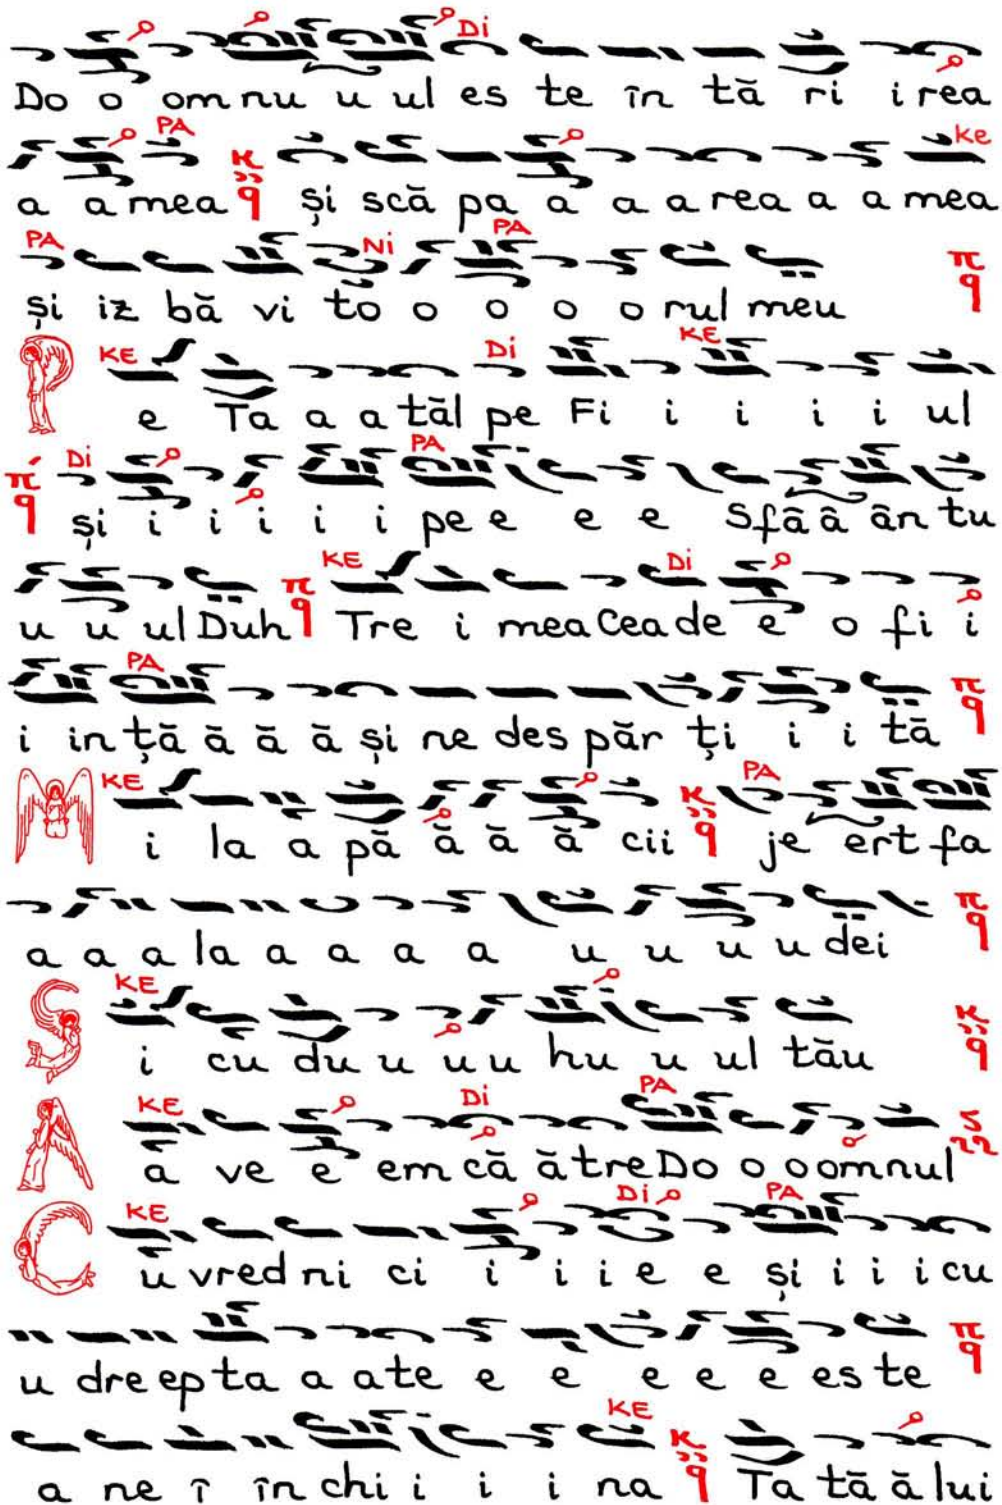 Di
Do o om nu u ul es te în tă ri i rea
PA ke
a a mea și scă pa a a a rea a a mea
PA Ni PA
și iz bă vi to o o o o rul meu
KE Di KE
P e Ta a a tăl pe Fi i i i i ul
Di PA
și i i i i i pe e e e Sfâ â ân tu
KE Di
u u ul Duh Tre i mea Cea de e o fi i
PA
i in ță ă ă ă și ne des păr ți i i tă
KE PA
M i la a pă ă ă ă cii je ert fa
a a a la a a a a u u u u dei
KE
S i cu du u u u hu u ul tău
KE Di PA
A a ve e em că ă tre Do o o omnul
KE Di PA
C u vred ni ci i i i e e și i i i cu
u dre ep ta a a te e e e e e es te
KE
a ne î în chi i i i na Ta tă ă lui